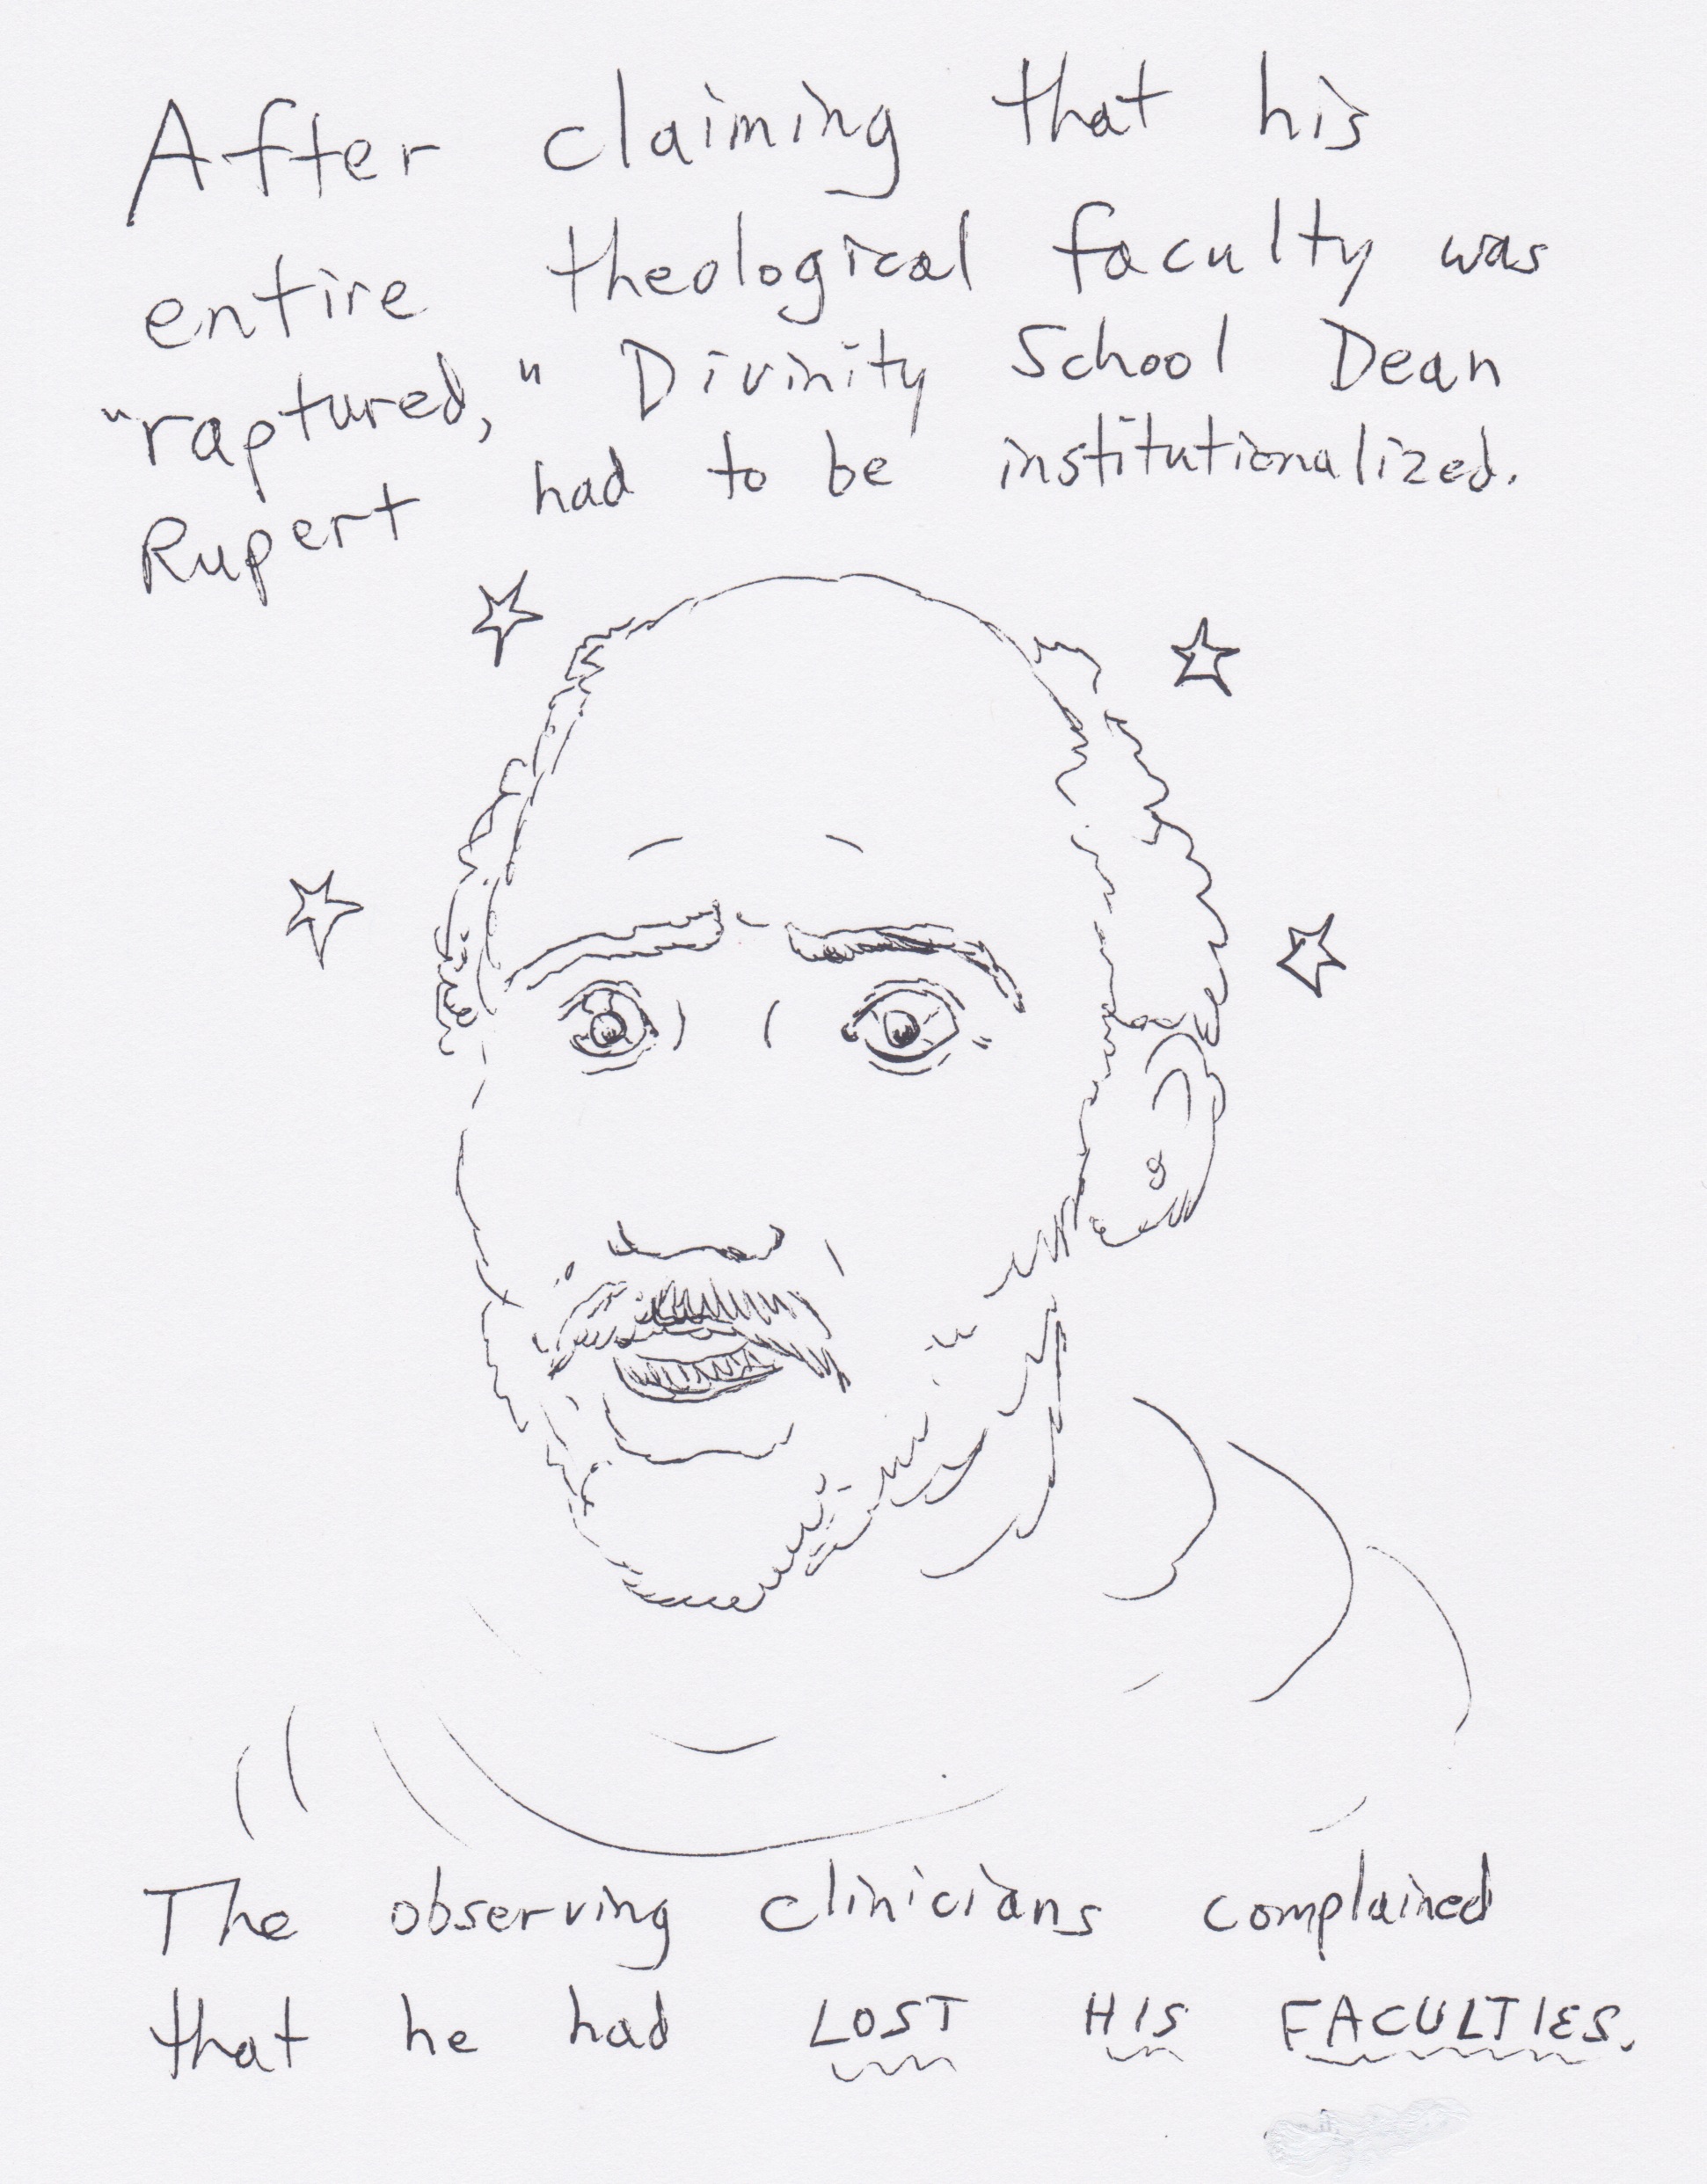 After claiming that his
entire theological faculty was
"raptured," Divinity School Dean
Rupert had to be institutionalized.
The observing clinicians complained
that he had LOST HIS FACULTIES.